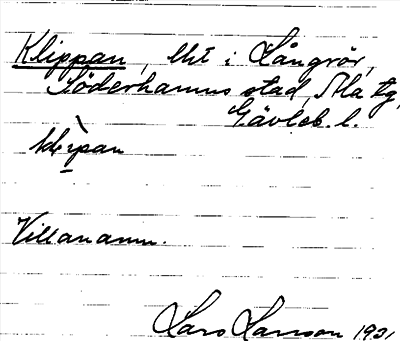 Klippan, lht i Långrör,
Söderhamns stad, Ala tg,
Gävleb. l.
klìpan
Villanamn.
Lars Larsson 1931